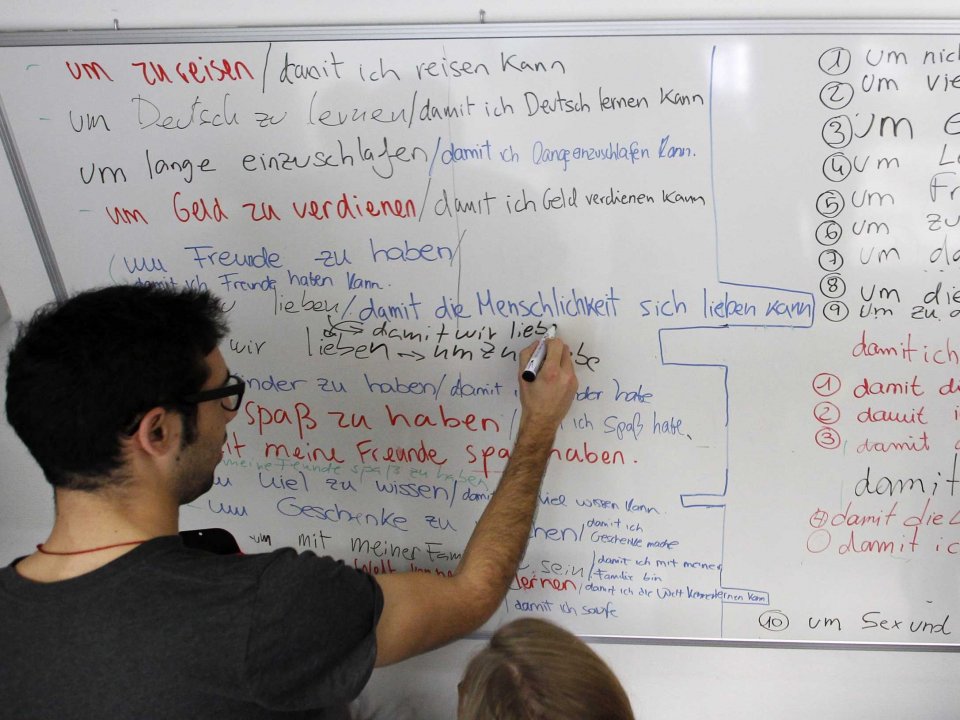 um zu reisen/damit ich reisen kann
um Deutsch zu lernen/damit ich Deutsch lernen kann
um lange einzuschlafen/damit ich lange einzuschlafen kann.
- um Geld zu verdienen/damit ich Geld verdienen kann
um Freunde zu haben/
damit ich Freunde haben kann.
lieben/damit die Menschlichkeit sich lieben kann
damit wir liebe
wir lieben → um zu
inder zu haben/damit
spaß zu haben/ ich Spaß habe.
meine Freunde spa haben.
meine Freunde spaß zu haben
viel zu wissen/damit viel wissen kann.
um Geschenke zu chen/damit ich Geschenke mache
um mit meiner Fam sein/damit ich mit meiner Familie bin
lernen/damit ich die Welt kennenlernen kann
/damit ich saufe
① um nich
② um vie
③ um e
④ um
⑤ um Fr
⑥ um zu
⑦ um da
⑧ um die
⑨ um zu
damit ich
① damit di
② damit i
③ damit
damit
④ damit die
damit ic
⑩ um Sex und